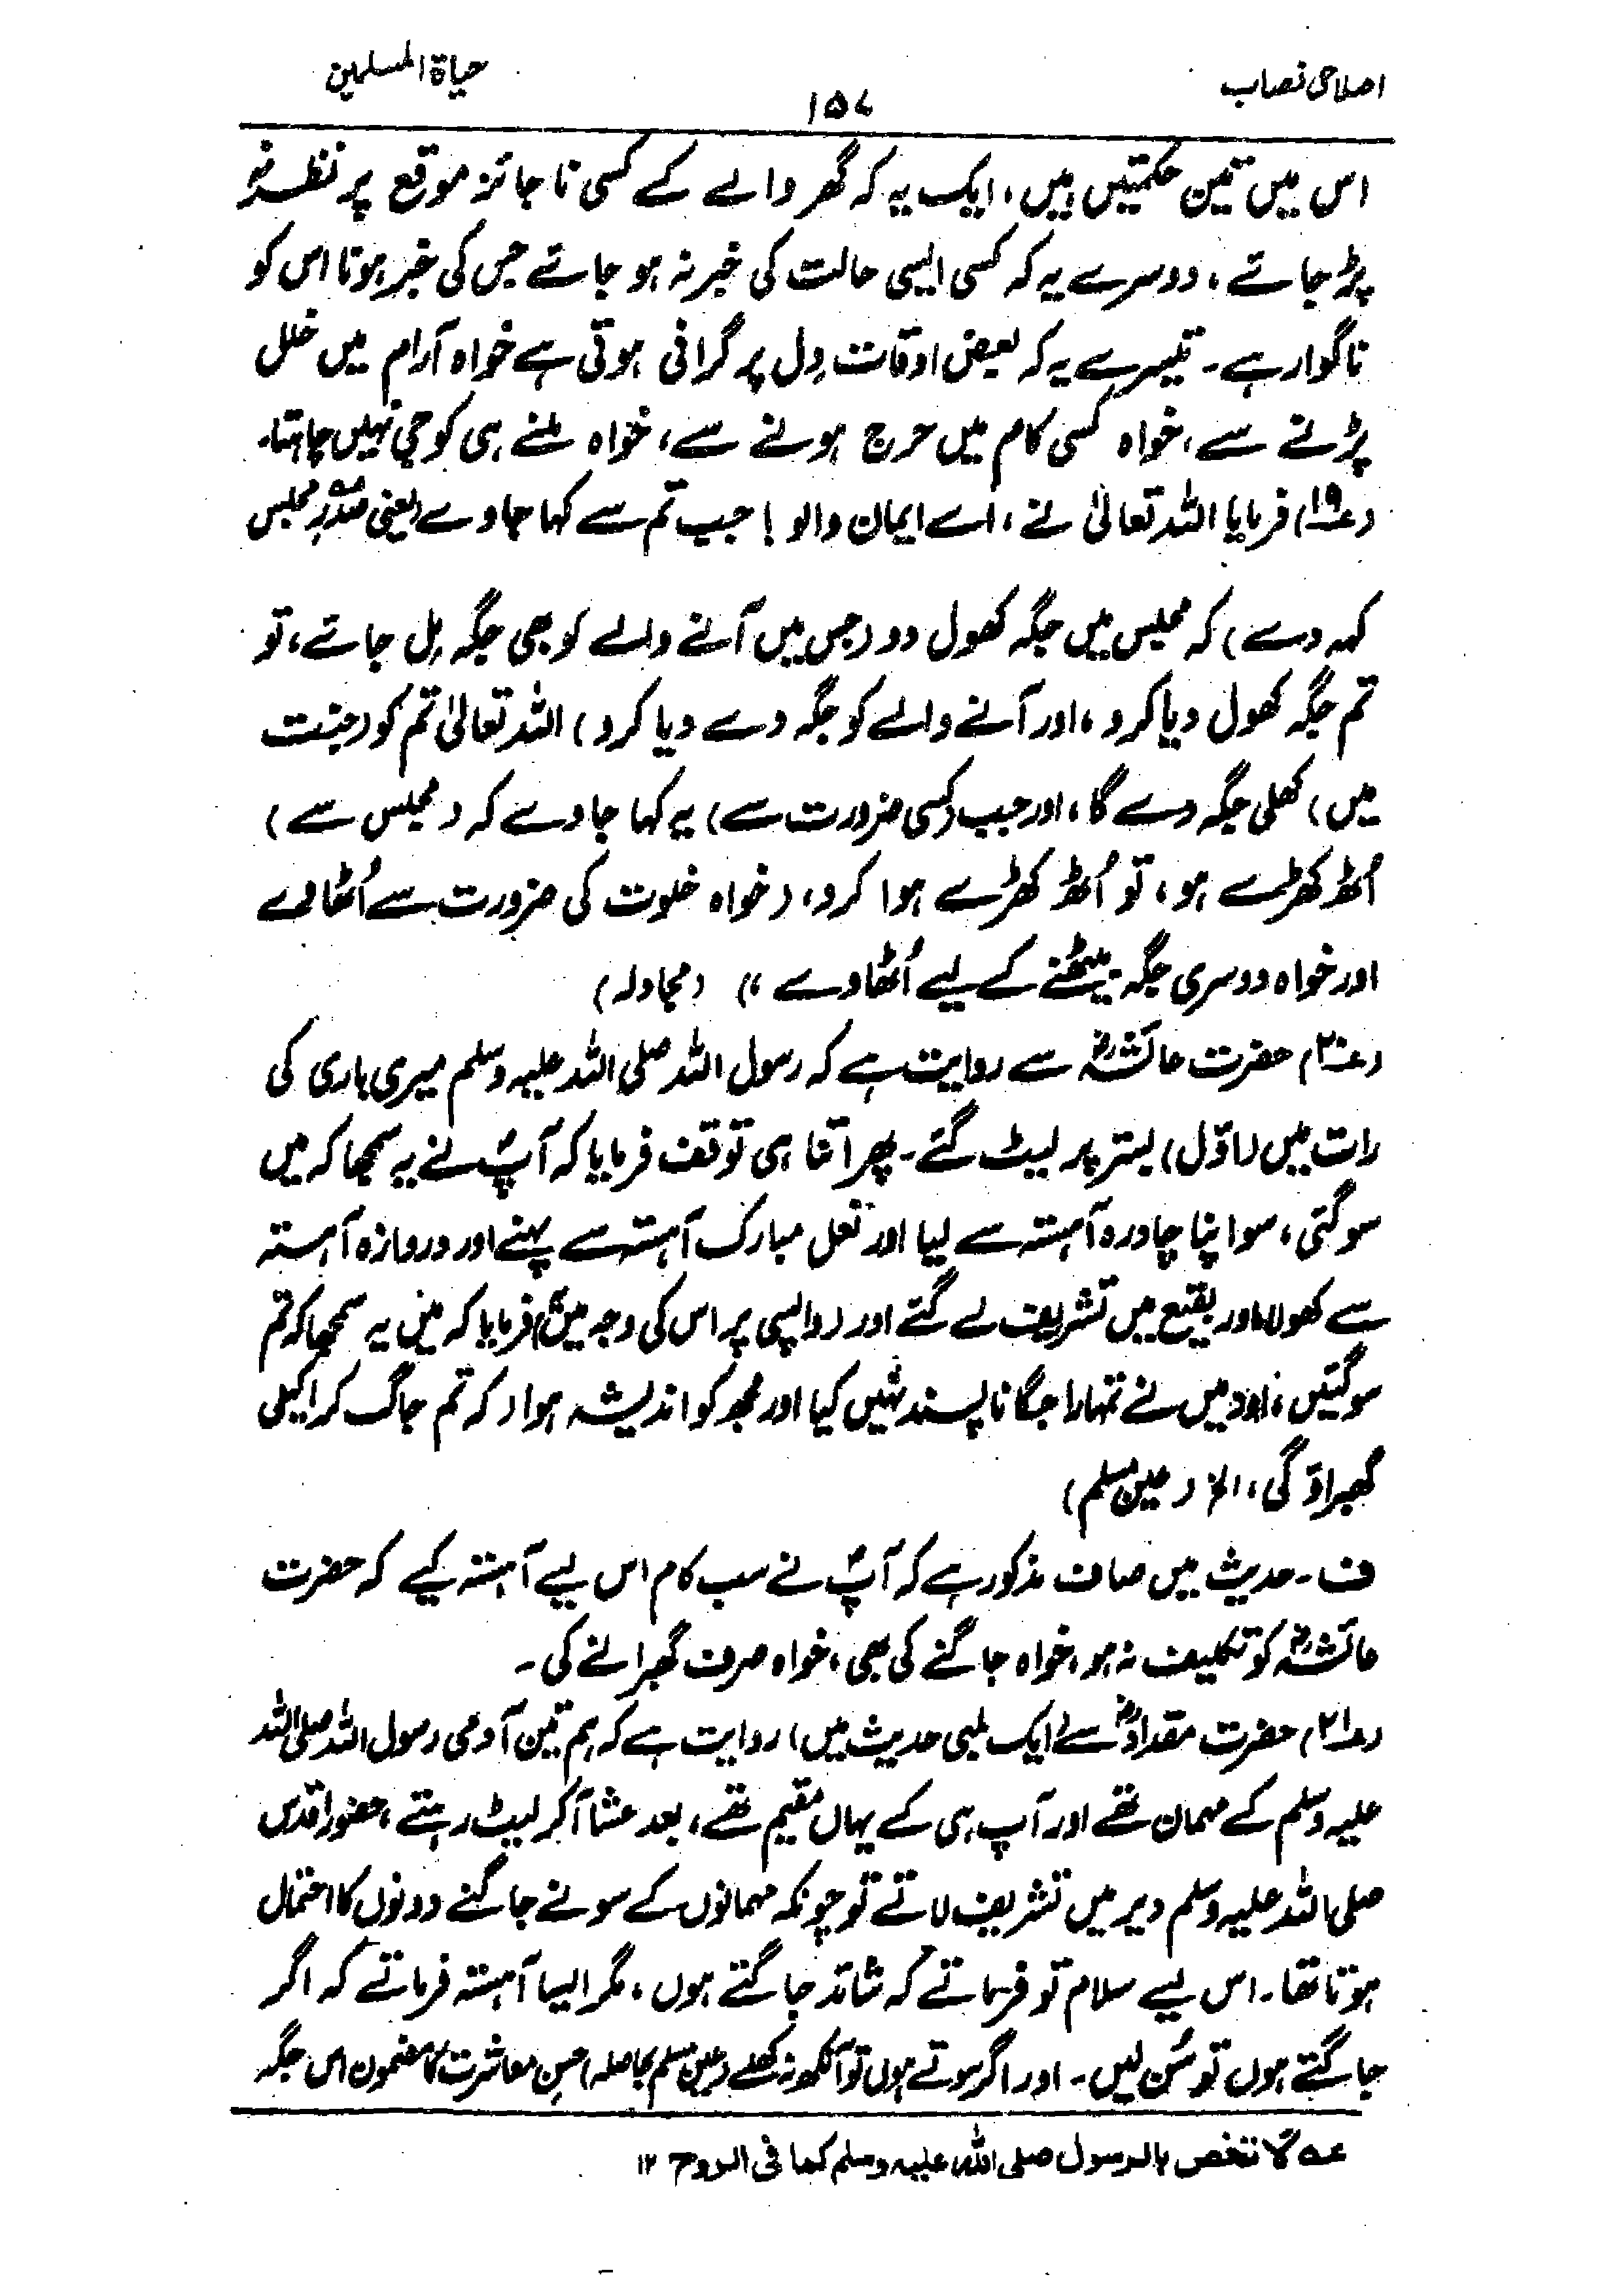 اصلاحی نصاب
۱۵۷
حیاۃ المسلمین
اس میں تین حکمتیں ہیں، ایک یہ کہ گھر والے کے کسی ناجائز موقع پر نظر نہ
پڑ جائے، دوسرے یہ کہ کسی ایسی حالت کی خبر نہ ہو جائے جس کی خبر ہونا اس کو
ناگوار ہے۔ تیسرے یہ کہ بعض اوقات دِل پر گرانی ہوتی ہے خواہ آرام میں خلل
پڑنے سے، خواہ کسی کام میں حرج ہونے سے، خواہ ملنے ہی کو جی نہیں چاہتا۔
(۱۹) فرمایا اللہ تعالیٰ نے، اے ایمان والو! جب تم سے کہا جاوے (یعنی صدرِ مجلس
کہہ دے) کہ مجلس میں جگہ کھول دو (جس میں آنے والے کو بھی جگہ مِل جائے، تو
تم جگہ کھول دیا کرو، اور آنے والے کو جگہ دے دیا کرو) اللہ تعالیٰ تم کو (جنت
میں) کھلی جگہ دے گا، اور جب (کسی ضرورت سے) یہ کہا جاوے کہ (مجلس سے)
اُٹھ کھڑے ہو، تو اُٹھ کھڑے ہوا کرو، (خواہ خلوت کی ضرورت سے اُٹھا دے
اور خواہ دوسری جگہ بیٹھنے کے لیے اُٹھا دے،،) (مجادلہ)
(۲۰) حضرت عائشہؓ سے روایت ہے کہ رسول اللہ صلی اللہ علیہ وسلم میری باری کی
رات میں (اوّل) بستر پر لیٹ گئے۔ پھر اتنا ہی توقف فرمایا کہ آپؐ نے یہ سمجھا کہ میں
سو گئی، سو اپنا چادرہ آہستہ سے لیا اور نعل مبارک آہستہ سے پہنے اور دروازہ آہستہ
سے کھولا، اور بقیع میں تشریف لے گئے اور (واپسی پر اس کی وجہ میں) فرمایا کہ میں یہ سمجھا کہ تم
سو گئیں، اور میں نے تمہارا جگانا پسند نہیں کیا اور مجھ کو اندیشہ ہوا (کہ تم جاگ کر اکیلی
گھبراؤ گی، الخ (عین مسلم)
ف۔ حدیث میں صاف مذکور ہے کہ آپؐ نے سب کام اس لیے آہستہ کیے کہ حضرت
عائشہؓ کو تکلیف نہ ہو، خواہ جاگنے کی بھی، خواہ صرف گھبرانے کی۔
(۲۱) حضرت مقدادؓ سے (ایک لمبی حدیث میں) روایت ہے کہ ہم تین آدمی رسول اللہ صلی اللہ
علیہ وسلم کے مہمان تھے اور آپ ہی کے یہاں مقیم تھے، بعد عشا آکر لیٹ رہتے، حضور اقدس
صلی اللہ علیہ وسلم دیر میں تشریف لاتے تو چونکہ مہمانوں کے سونے جاگنے دونوں کا احتمال
ہوتا تھا۔ اس لیے سلام تو فرماتے کہ شائد جاگتے ہوں، مگر ایسا آہستہ فرماتے کہ اگر
جاگتے ہوں تو سُن لیں۔ اور اگر سوتے ہوں تو آنکھ نہ کھلے (عین مسلم بحاصلہ) حسنِ معاشرت کا مضمون اس جگہ
عہ لا تخص بالرسول صلی اللہ علیہ وسلم کما فی الروح ۱۲